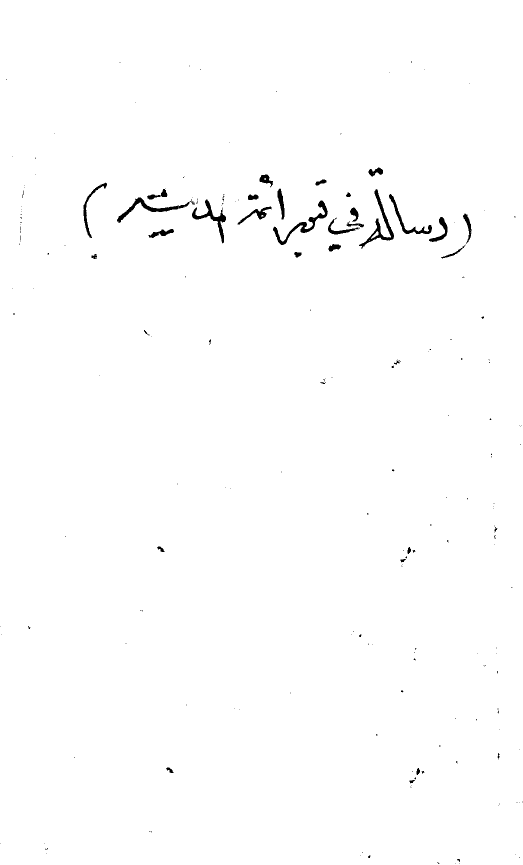 (رسالة في قبور ائمة